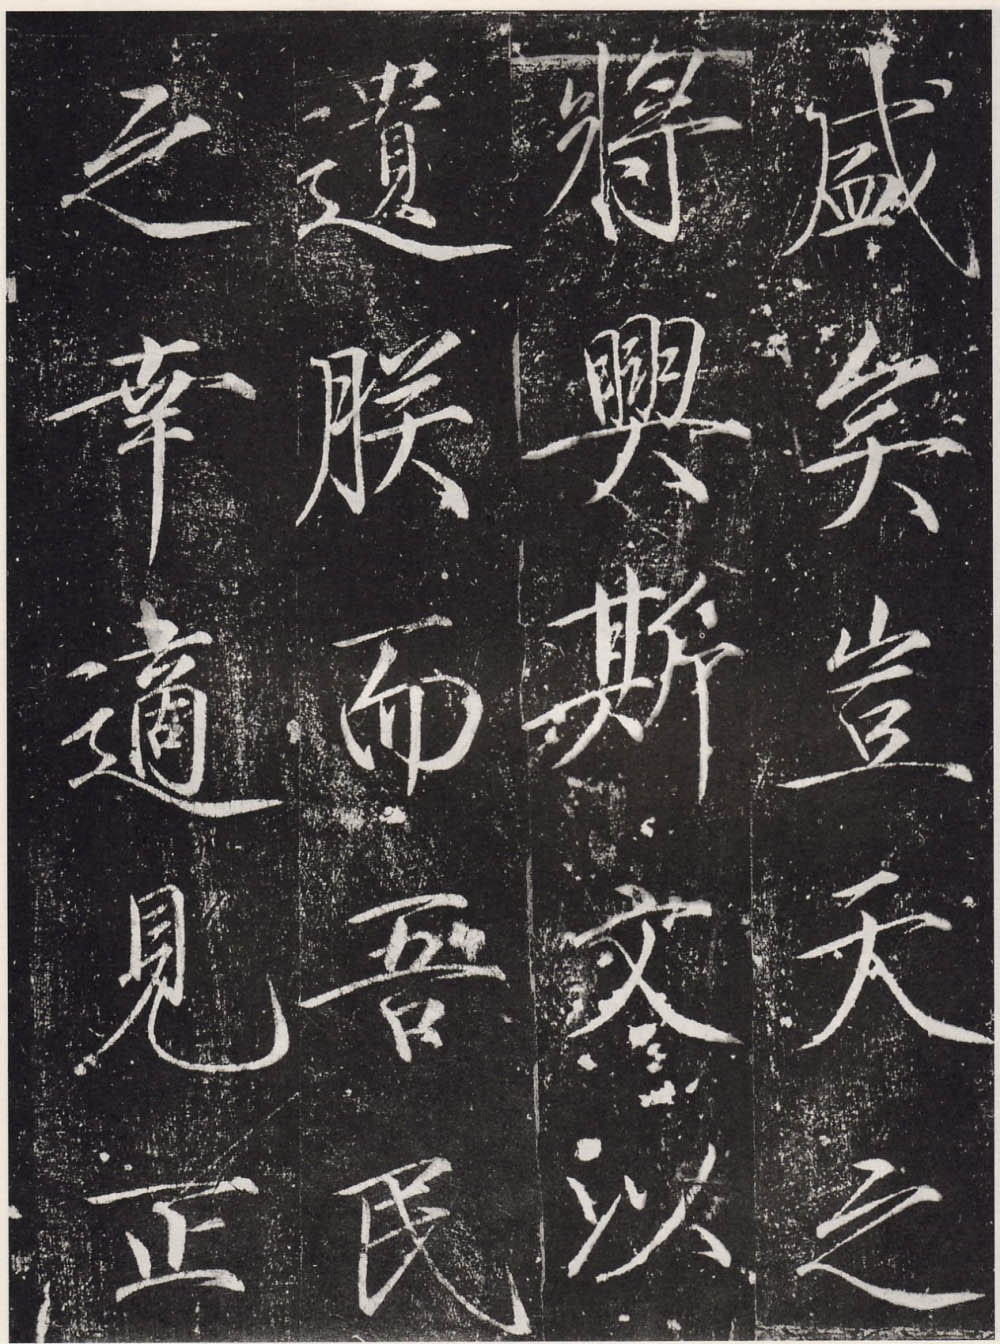 盛矣豈天之
將興斯文以
遺朕而吾民
之幸適見正